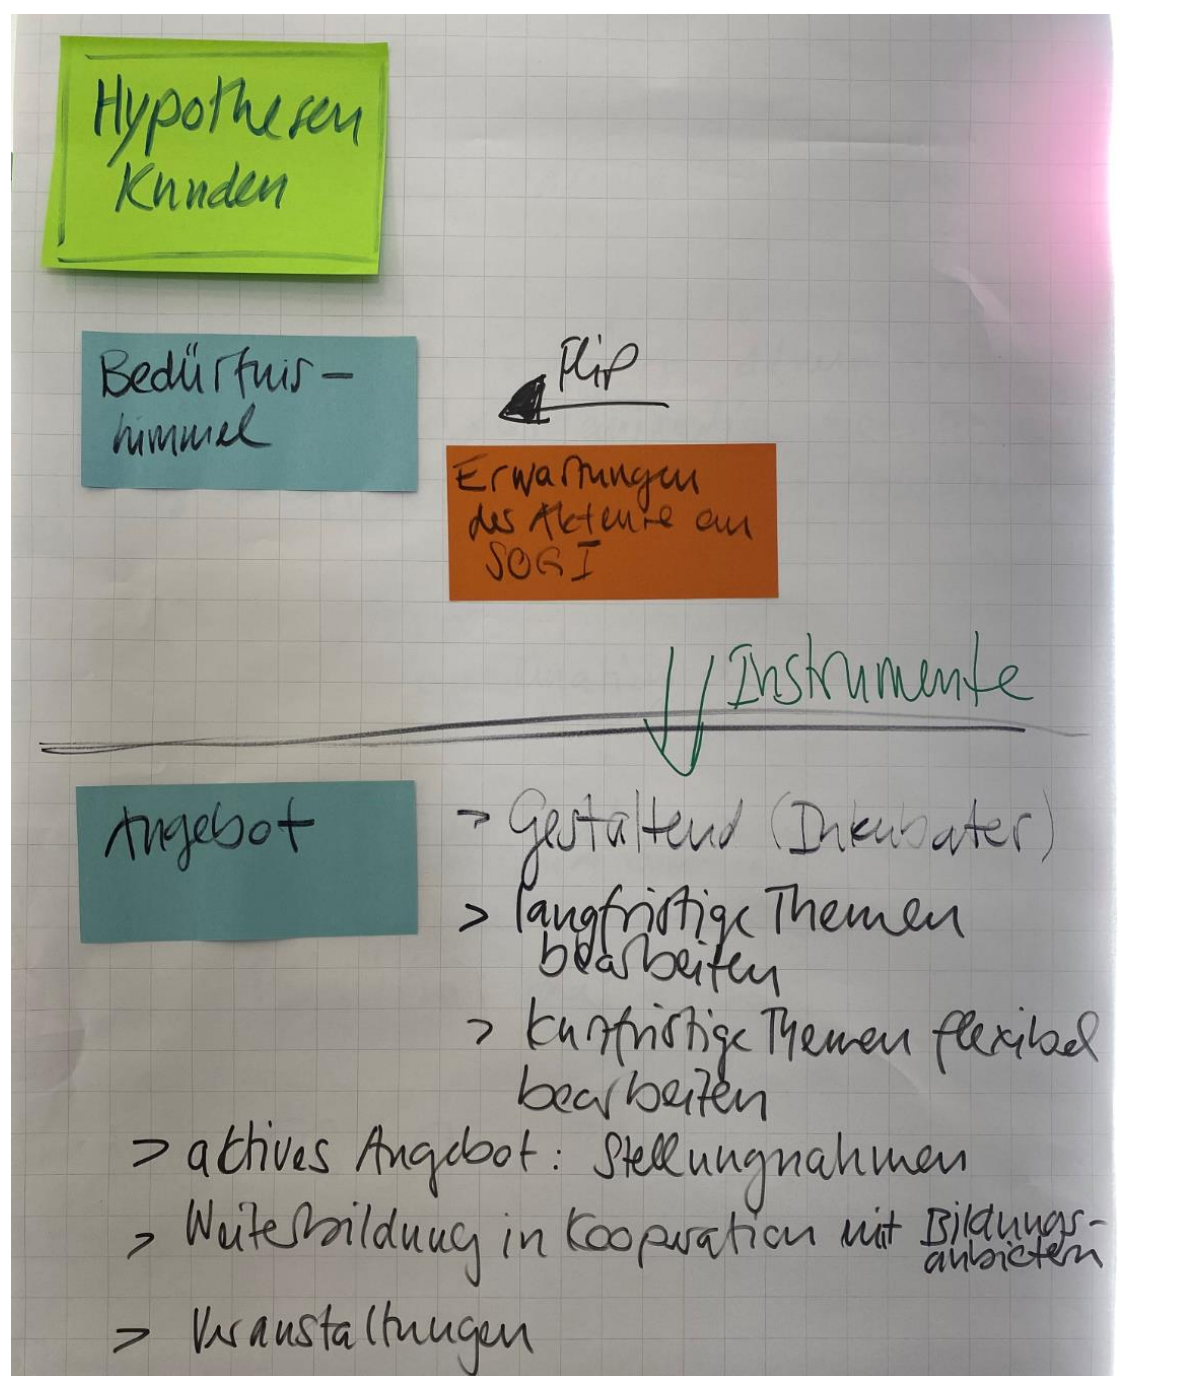 Hypothesen
Kunden
Bedürfnis-
himmel
Flip
Erwartungen
des Akteure an
SOGI
Instrumente
Angebot
> Gestaltend (Inkubator)
> langfristige Themen
bearbeiten
> kurzfristige Themen flexibel
bearbeiten
> aktives Angebot: Stellungnahmen
> Weiterbildung in Kooperation mit Bildungs-
anbietern
> Veranstaltungen